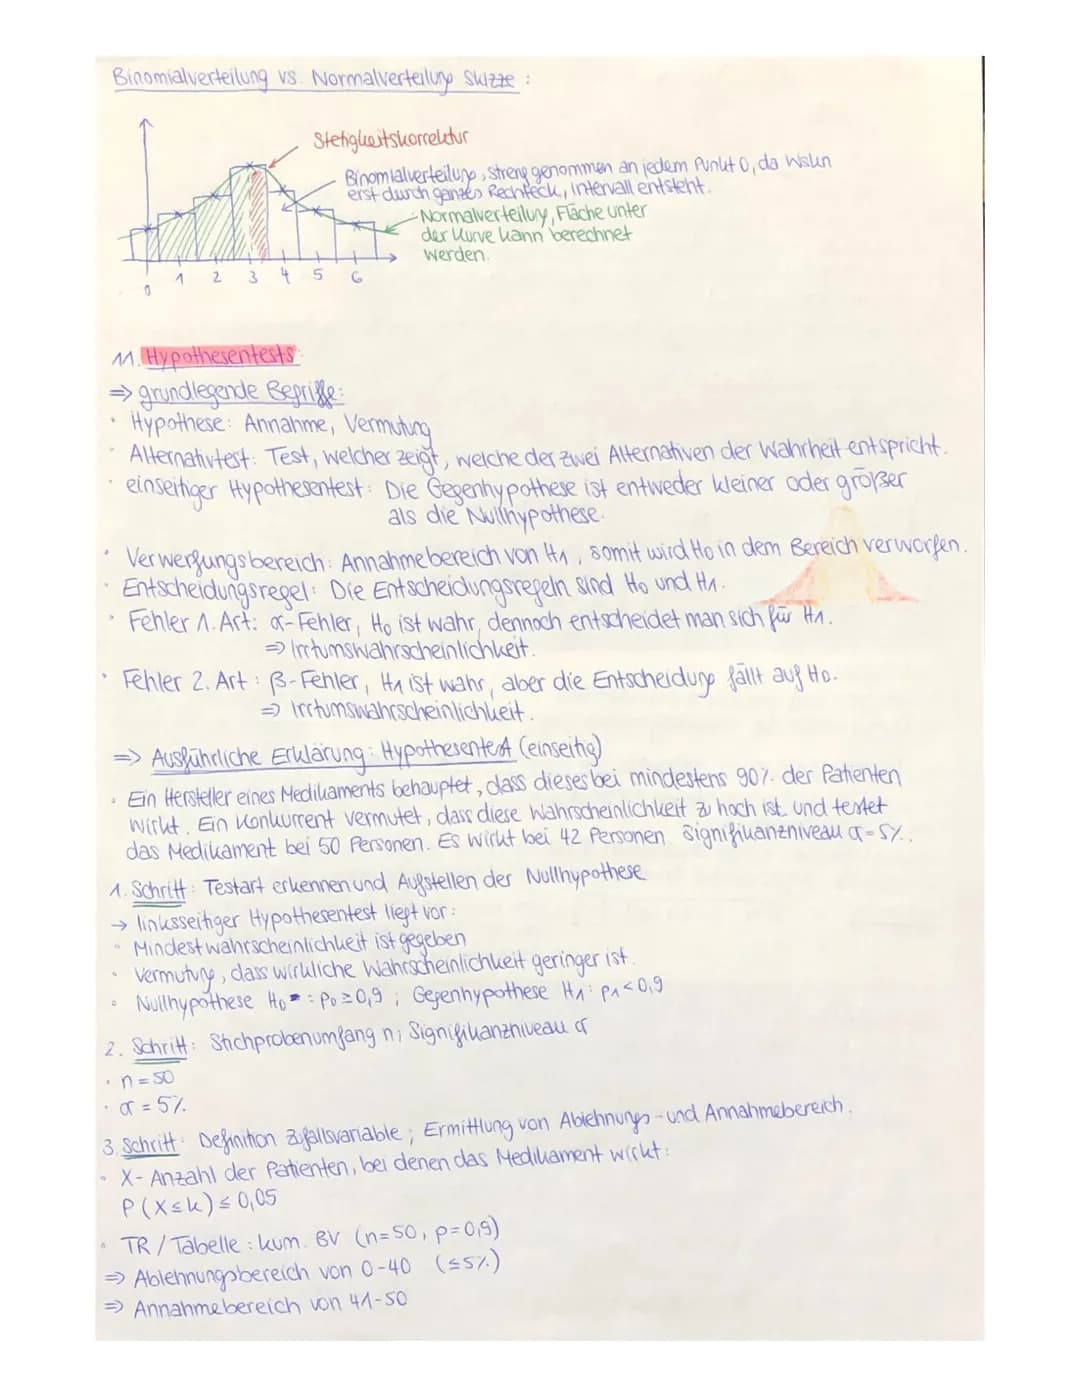 Binomialverteilung vs. Normalverteilung Skizze :
Stetigkeitskorrektur
Binomialverteilung, streng genommen an jedem Punkt 0, da Wskn
erst durch ganzes Rechteck, Intervall entsteht.
Normalverteilung, Fläche unter
der Kurve kann berechnet
werden.
0 1 2 3 4 5 6
11. Hypothesentests:
=> grundlegende Begriffe:
• Hypothese: Annahme, Vermutung
• Alternativtest: Test, welcher zeigt, welche der zwei Alternativen der Wahrheit entspricht.
• einseitiger Hypothesentest: Die Gegenhypothese ist entweder kleiner oder größer
als die Nullhypothese.
• Verwerfungsbereich: Annahmebereich von H1, somit wird H0 in dem Bereich verworfen.
• Entscheidungsregel: Die Entscheidungsregeln sind H0 und H1.
• Fehler 1. Art: α-Fehler, H0 ist wahr, dennoch entscheidet man sich für H1.
=> Irrtumswahrscheinlichkeit.
• Fehler 2. Art: β-Fehler, H1 ist wahr, aber die Entscheidung fällt auf H0.
=> Irrtumswahrscheinlichkeit.
=> Ausführliche Erklärung: Hypothesentest (einseitig)
• Ein Hersteller eines Medikaments behauptet, dass dieses bei mindestens 90% der Patienten
wirkt. Ein Konkurrent vermutet, dass diese Wahrscheinlichkeit zu hoch ist und testet
das Medikament bei 50 Personen. Es wirkt bei 42 Personen. Signifikanzniveau α=5%.
1. Schritt: Testart erkennen und Aufstellen der Nullhypothese
→ linksseitiger Hypothesentest liegt vor:
• Mindestwahrscheinlichkeit ist gegeben
• Vermutung, dass wirkliche Wahrscheinlichkeit geringer ist.
• Nullhypothese H0 : p0 ≥ 0,9 ; Gegenhypothese H1: p1 < 0,9
2. Schritt: Stichprobenumfang n; Signifikanzniveau α
• n = 50
• α = 5%
3. Schritt: Definition Zufallsvariable; Ermittlung von Ablehnungs- und Annahmebereich.
• X- Anzahl der Patienten, bei denen das Medikament wirkt:
P(X ≤ k) ≤ 0,05
• TR / Tabelle : kum. BV (n=50, p=0,9)
=> Ablehnungsbereich von 0-40 (≤5%)
=> Annahmebereich von 41-50